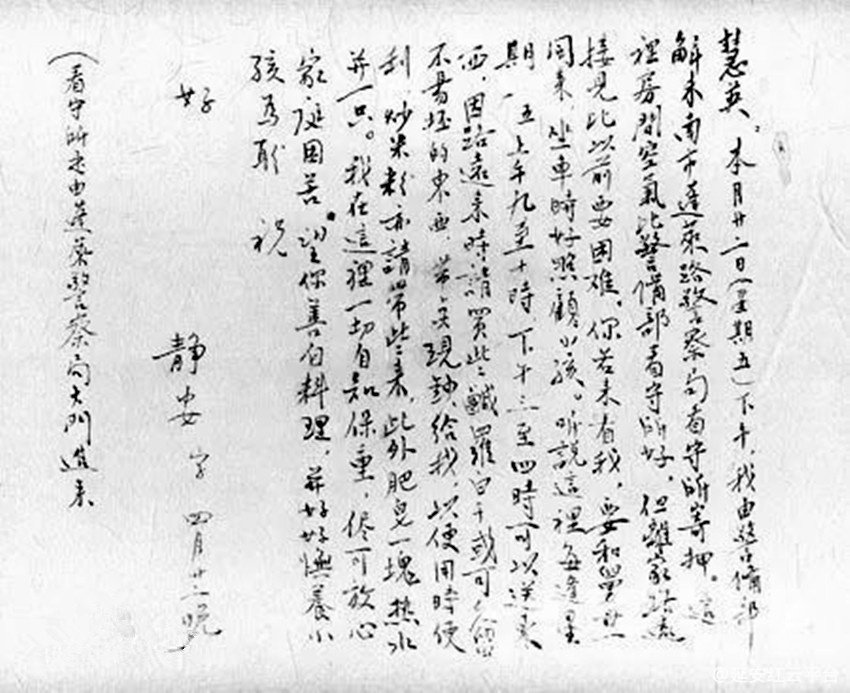 慧英：本月廿二日（星期五）下午，我由警备部
解来南市蓬萊路警察局看守所寄押。這
裡房間空氣比警備部看守所好，但離家路遠
接見比以前要困难。你若来看我，要和舅母
同来，坐車時好照顧小孩。听說這裡每逢星
期一、五上午九至十時下午三至四時可以送東
西，因路遠来時請買些鹹羅卜干或可久留
不易坏的東西，带点現鈔給我，以便用時便
利，炒米粉亦請带些来，此外肥皂一塊，热水
并一只。我在這裡一切自知保重，侭可放心
家庭困苦。望你善自料理，并好好撫養小
孩为盼 祝
好
靜安 字 四月廿二晚
（看守所是由蓬萊警察局大門進来